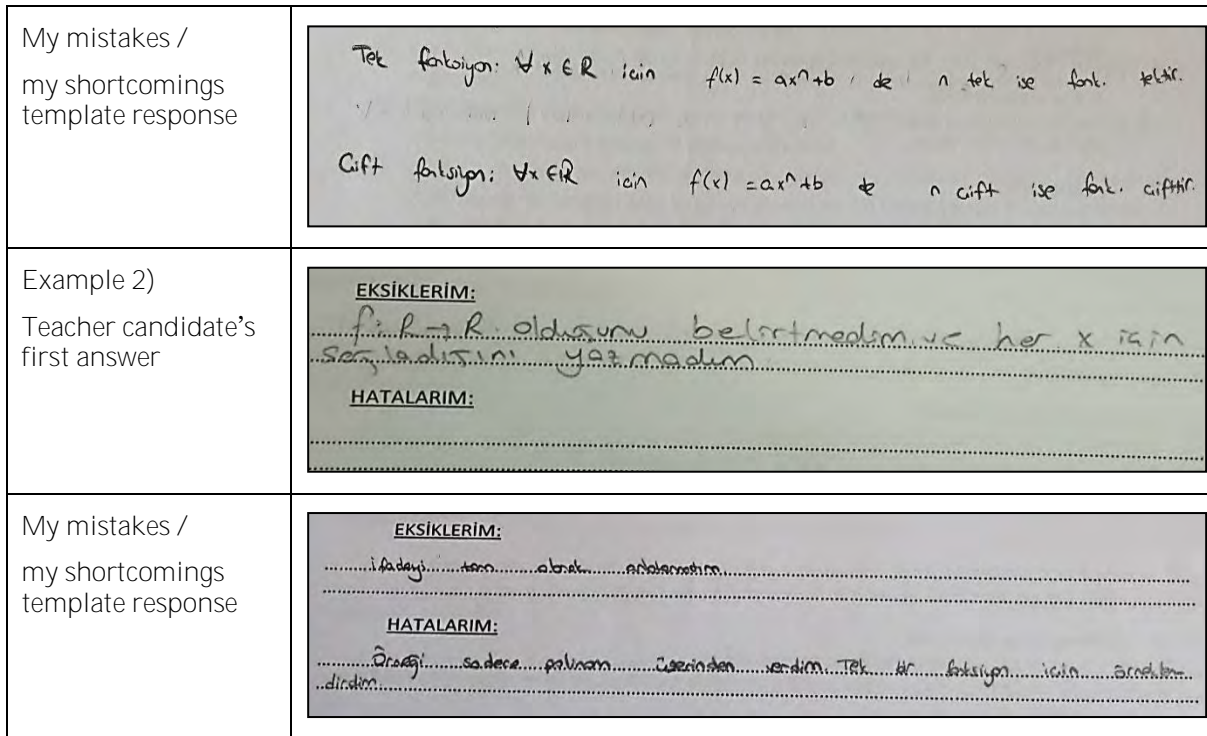 My mistakes /
my shortcomings
template response
Tek fonksiyon: ∀x ∈ R için f(x) = ax^n+b de n tek ise fonk. tektir.
Çift fonksiyon: ∀x ∈ R için f(x) = ax^n+b de n çift ise fonk. çifttir.
Example 2)
Teacher candidate's
first answer
EKSİKLERİM:
f: R → R olduğunu belirtmedim ve her x için
sağladığını yazmadım
HATALARIM:
My mistakes /
my shortcomings
template response
EKSİKLERİM:
ifadeyi tam olarak
HATALARIM:
Örneği sadece polinom üzerinden verdim. Tek bir fonksiyon için örneklen-
dirdim.